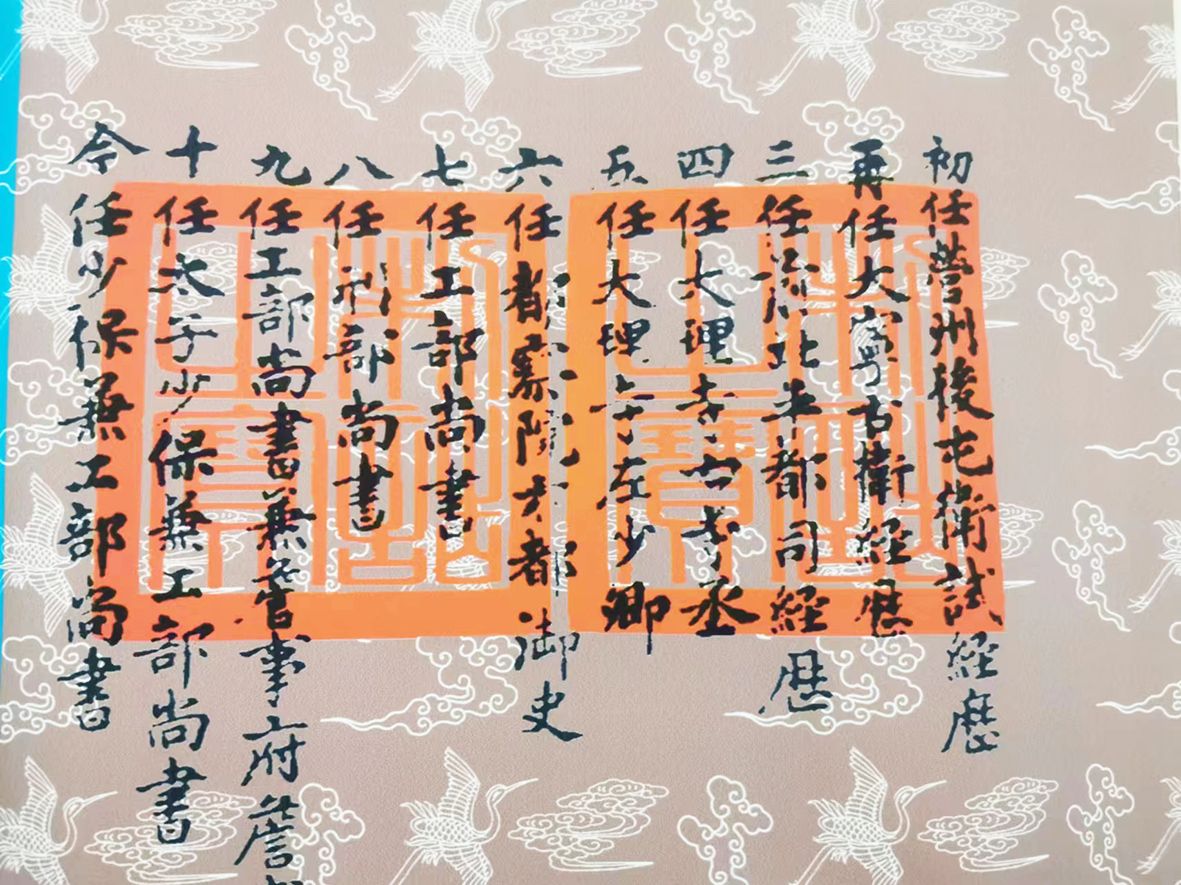 初任營州後屯衛試經歷
再任大寧右衛經歷
三任北平都司經歷
四任大理寺右寺丞
五任大理寺左少卿
六任都察院右都御史
七任工部尚書
八任刑部尚書
九任工部尚書兼詹事府詹
十任太子少保兼工部尚書
今任少保兼工部尚書
制誥之寶
制誥之寶